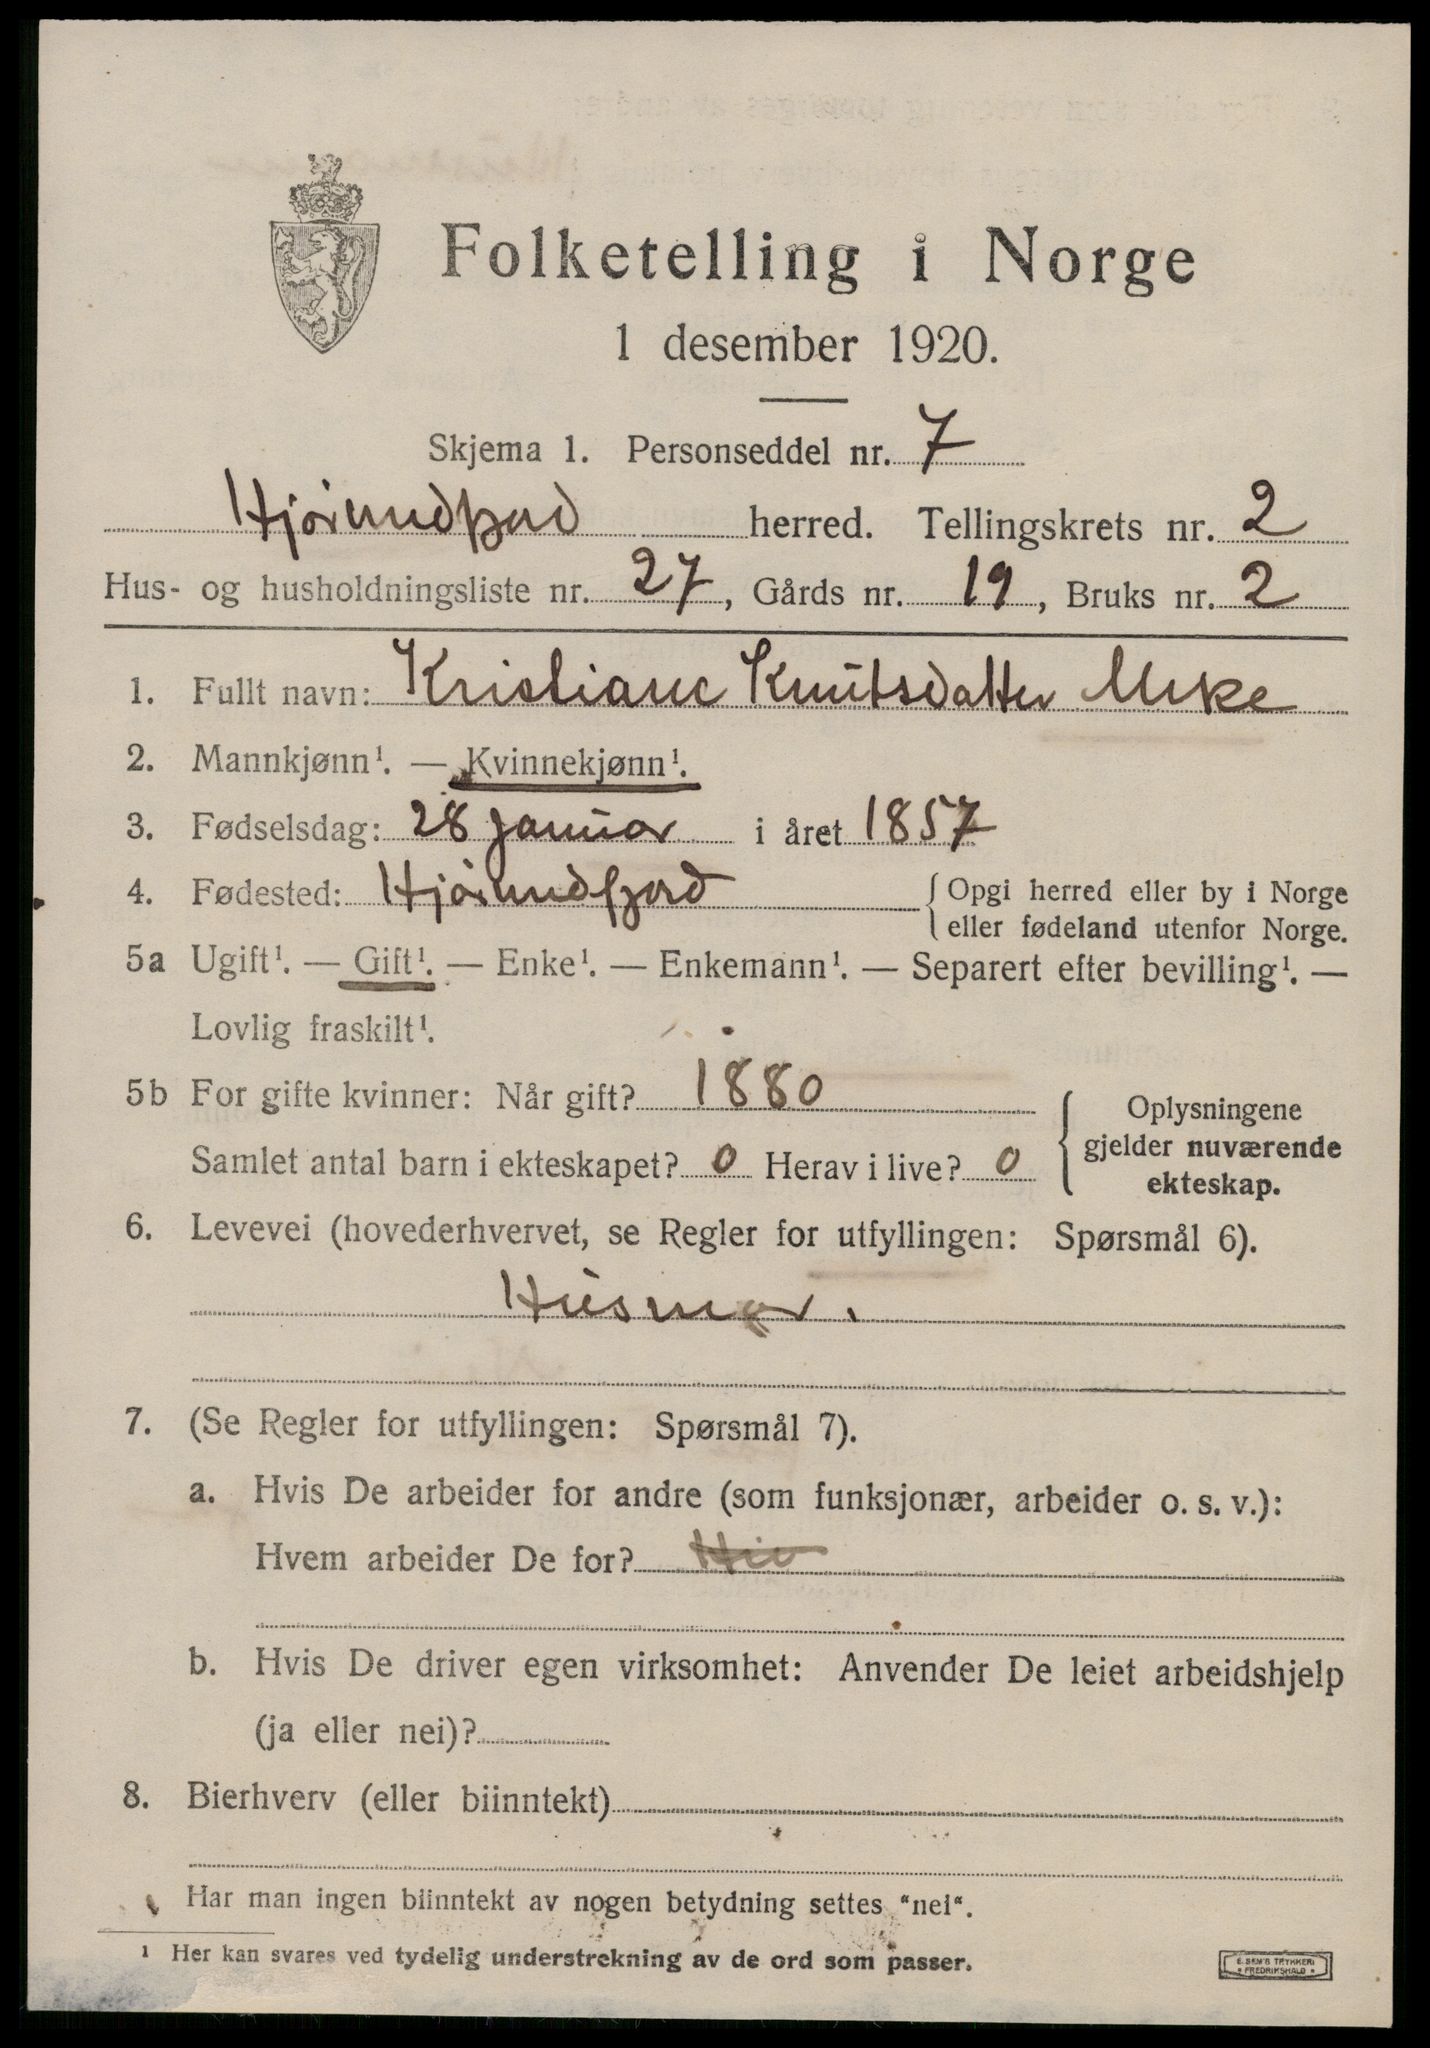 Folketelling i Norge
1 desember 1920.
Skjema 1. Personseddel nr. 7
Hjørundfjord herred. Tellingskrets nr. 2
Hus- og husholdningsliste nr. 27, Gårds nr. 19, Bruks nr. 2
1. Fullt navn: Kristiane Knutsdatter
2. Mannkjønn¹. — Kvinnekjønn¹.
3. Fødselsdag: 28 januar i året 1857
4. Fødested: Hjørundfjord { Opgi herred eller by i Norge
eller fødeland utenfor Norge.
5a Ugift¹. — Gift¹. — Enke¹. — Enkemann¹. — Separert efter bevilling¹. —
Lovlig fraskilt¹.
5b For gifte kvinner: Når gift? 1880
Samlet antal barn i ekteskapet? 0 Herav i live? 0
{ Oplysningene
gjelder nuværende
ekteskap.
6. Levevei (hovederhvervet, se Regler for utfyllingen: Spørsmål 6).
Husmor.
7. (Se Regler for utfyllingen: Spørsmål 7).
a. Hvis De arbeider for andre (som funksjonær, arbeider o. s. v.):
Hvem arbeider De for?
b. Hvis De driver egen virksomhet: Anvender De leiet arbeidshjelp
(ja eller nei)?
8. Bierhverv (eller biinntekt)
Har man ingen biinntekt av nogen betydning settes "nei".
¹ Her kan svares ved tydelig understrekning av de ord som passer.
E. SEM'S TRYKKERI
• FREDRIKSHALD •